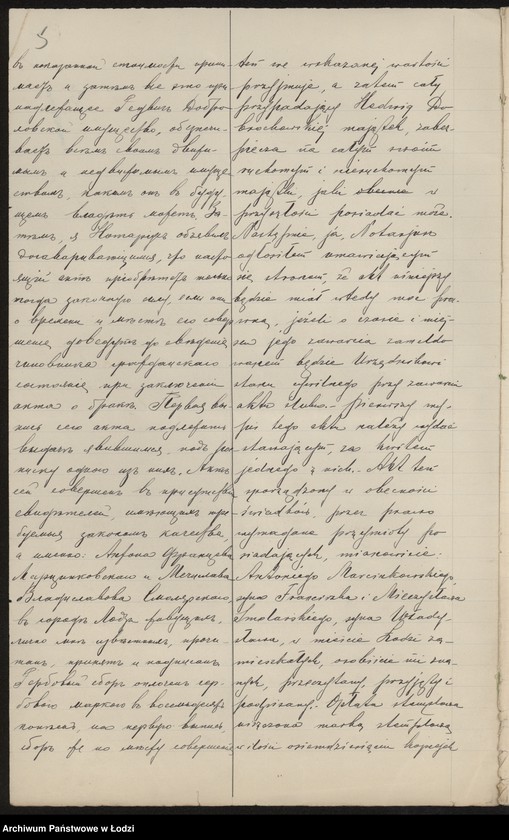 5
въ показанной стоимости прини-
маетъ и затѣмъ все это при-
надлежащее Гедвигѣ Добро-
ховской имущество, обезпе-
чиваетъ всѣмъ своимъ движи-
мымъ и недвижимымъ имуще-
ствомъ, какимъ онъ въ буду-
щемъ владѣть можетъ. За-
тѣмъ, я Нотаріусъ объявилъ
договаривающимся, что насто-
ящій актъ пріобрѣтетъ только
тогда законную силу, если они
о времени и мѣстѣ его совер-
шенія доведутъ до свѣдѣнія
чиновника гражданскаго
состоянія при заключеніи
акта о бракѣ. Первая вы-
пись сего акта подлежитъ
выдачѣ явившимся, подъ рос-
писку одного изъ нихъ. Актъ
сей совершенъ въ присутствіи
свидѣтелей, имѣющихъ тре-
буемыя закономъ качества,
а именно: Антона Францовича
Марцинковскаго и Мечислава
Владиславова Смолярскаго,
въ городѣ Лодзи живущихъ,
лично мнѣ извѣстныхъ, прочи-
танъ, принятъ и подписанъ
Гербовый сборъ оплаченъ гер-
бовою маркою въ восемьдесятъ
копѣекъ, на первую выпись
сборъ
по мѣсту совершенія
ten we wskazanej wartości
przyjmuje, a zatem cały
przypadający Hedwig Do-
brochowskiej majątek, zabez-
piecza na całym swoim
ruchomym i nieruchomym
majątku, jaki obecnie i w
przyszłości posiadać może.
Następnie, ja, Notarjusz
ogłosiłem umawiającym
się stronom, że akt niniejszy
będzie miał wtedy moc pra-
wną, jeżeli o czasie i miej-
scu jego zawarcia zameldo-
wanem będzie Urzędnikowi
stanu cywilnego przy zawarciu
aktu ślubu. Pierwszy wy-
pis tego aktu należy wydać
stawającym, za kwitem
jednego z nich. Akt ten
sporządzony w obecności
świadków, przez prawo
wymagane przymioty po-
siadających, mianowicie:
Antoniego Marcinkowskiego,
syna Franciszka i Mieczysława
Smolarskiego, syna Włady-
sława, w mieście Łodzi za-
mieszkałych, osobiście mi zna-
nych, przeczytany, przyjęty i
podpisany. Opłata stemplowa
uiszczona marką stemplową
w ilości osiemdziesięciu kopiejek
Archiwum Państwowe w Łodzi